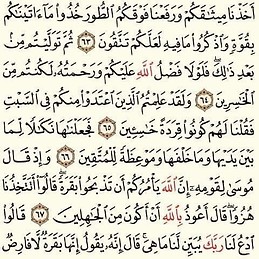 أَخَذْنَا مِيثَـٰقَكُمْ وَرَفَعْنَا فَوْقَكُمُ ٱلطُّورَ خُذُوا۟ مَآ ءَاتَيْنَـٰكُم
بِقُوَّةٍ وَٱذْكُرُوا۟ مَا فِيهِ لَعَلَّكُمْ تَتَّقُونَ ٦٣ ثُمَّ تَوَلَّيْتُم مِّنۢ
بَعْدِ ذَٰلِكَ ۖ فَلَوْلَا فَضْلُ ٱللَّهِ عَلَيْكُمْ وَرَحْمَتُهُۥ لَكُنتُم مِّنَ
ٱلْخَـٰسِرِينَ ٦٤ وَلَقَدْ عَلِمْتُمُ ٱلَّذِينَ ٱعْتَدَوْا۟ مِنكُمْ فِى ٱلسَّبْتِ
فَقُلْنَا لَهُمْ كُونُوا۟ قِرَدَةً خَـٰسِـِٔينَ ٦٥ فَجَعَلْنَـٰهَا نَكَـٰلًا لِّمَا
بَيْنَ يَدَيْهَا وَمَا خَلْفَهَا وَمَوْعِظَةً لِّلْمُتَّقِينَ ٦٦ وَإِذْ قَالَ
مُوسَىٰ لِقَوْمِهِۦٓ إِنَّ ٱللَّهَ يَأْمُرُكُمْ أَن تَذْبَحُوا۟ بَقَرَةً ۖ قَالُوٓا۟ أَتَتَّخِذُنَا
هُزُوًا ۖ قَالَ أَعُوذُ بِٱللَّهِ أَنْ أَكُونَ مِنَ ٱلْجَـٰهِلِينَ ٦٧ قَالُوا۟
ٱدْعُ لَنَا رَبَّكَ يُبَيِّن لَّنَا مَا هِىَ ۚ قَالَ إِنَّهُۥ يَقُولُ إِنَّهَا بَقَرَةٌ لَّا فَارِضٌ